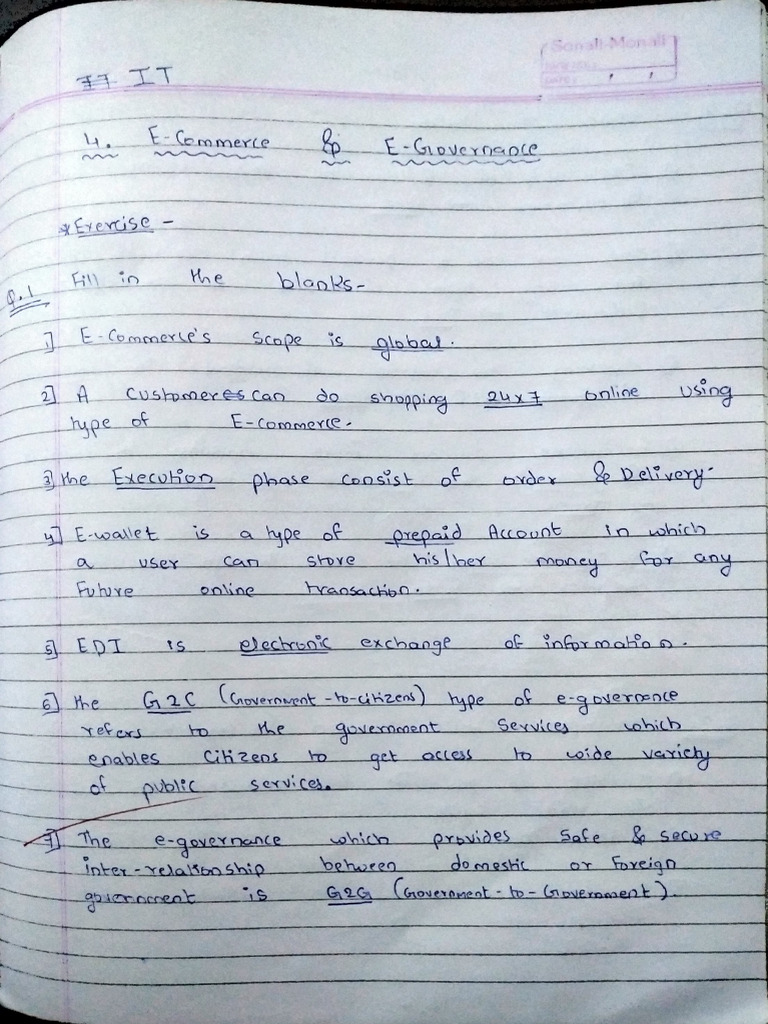 IT
Sonali-Monali
4. E-Commerce & E-Governance
* Exercise -
Q.1 Fill in the blanks-
1] E-Commerce's scope is global.
2] A customeres can do shopping 24x7 online using
type of E-commerce.
3] the Execution phase consist of order & Delivery.
4] E-wallet is a type of prepaid Account in which
a user can store his/her money for any
Future online transaction.
5] EDI is electronic exchange of information.
6] the G2C (Government-to-citizens) type of e-governance
refers to the government services which
enables citizens to get access to wide variety
of public services.
7] The e-governance which provides safe & secure
inter-relationship between domestic or foreign
government is G2G (Government-to-Government).